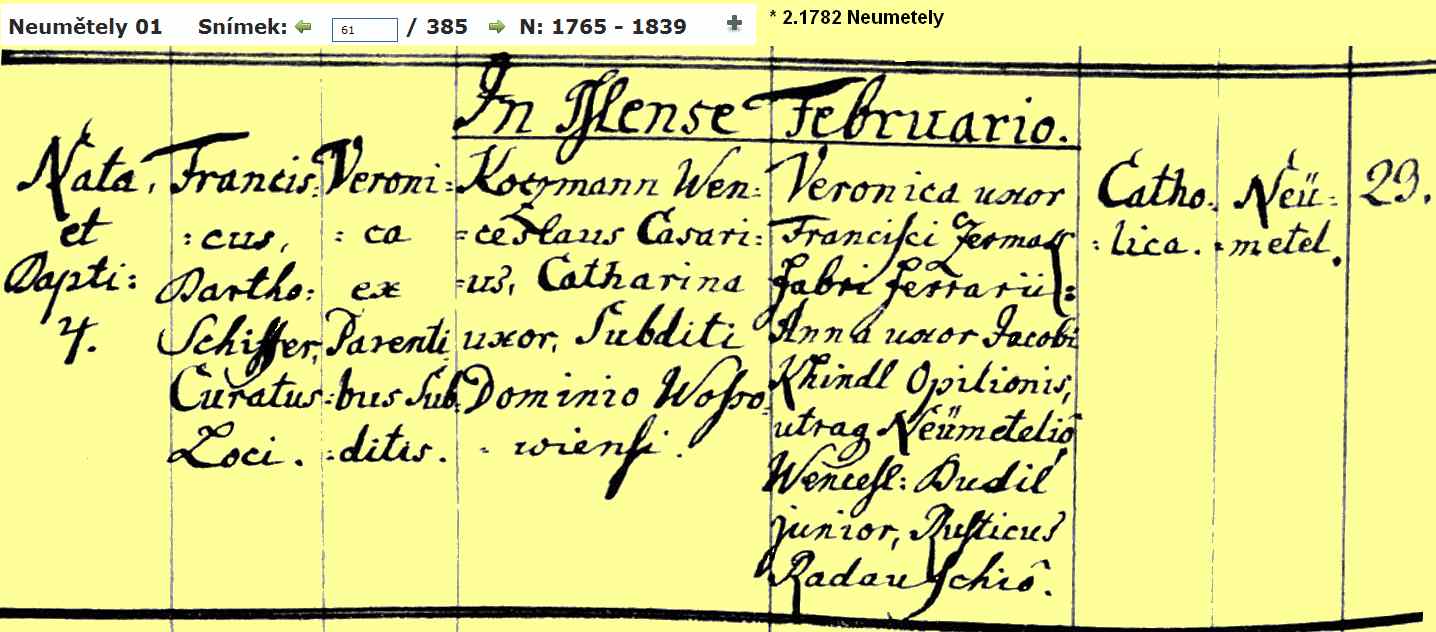 Neumětely 01 Snímek: 61 / 385 N: 1765 - 1839
* 2.1782 Neumetely
In Mense Februario.
Nata
et
Bapti:
4.
Francis:
:cus,
Bartho:
Schiffer,
Curatus
Loci.
Veroni:
:ca
ex
Parenti
:bus Sub
:ditis.
Wen:
:ceslaus Casari:
:us, Catharina
uxor, Subditi
Dominio Wosso:
:wiensi.
Veronica uxor
Francisci
Fabri ferrarii:
Anna uxor Jacobi
Khindl Opilionis,
utraq Neümetelió
Wencesl: Dudil
junior, Rusticus
Radauschió.
Catho:
:lica.
Neü:
:metel.
29.